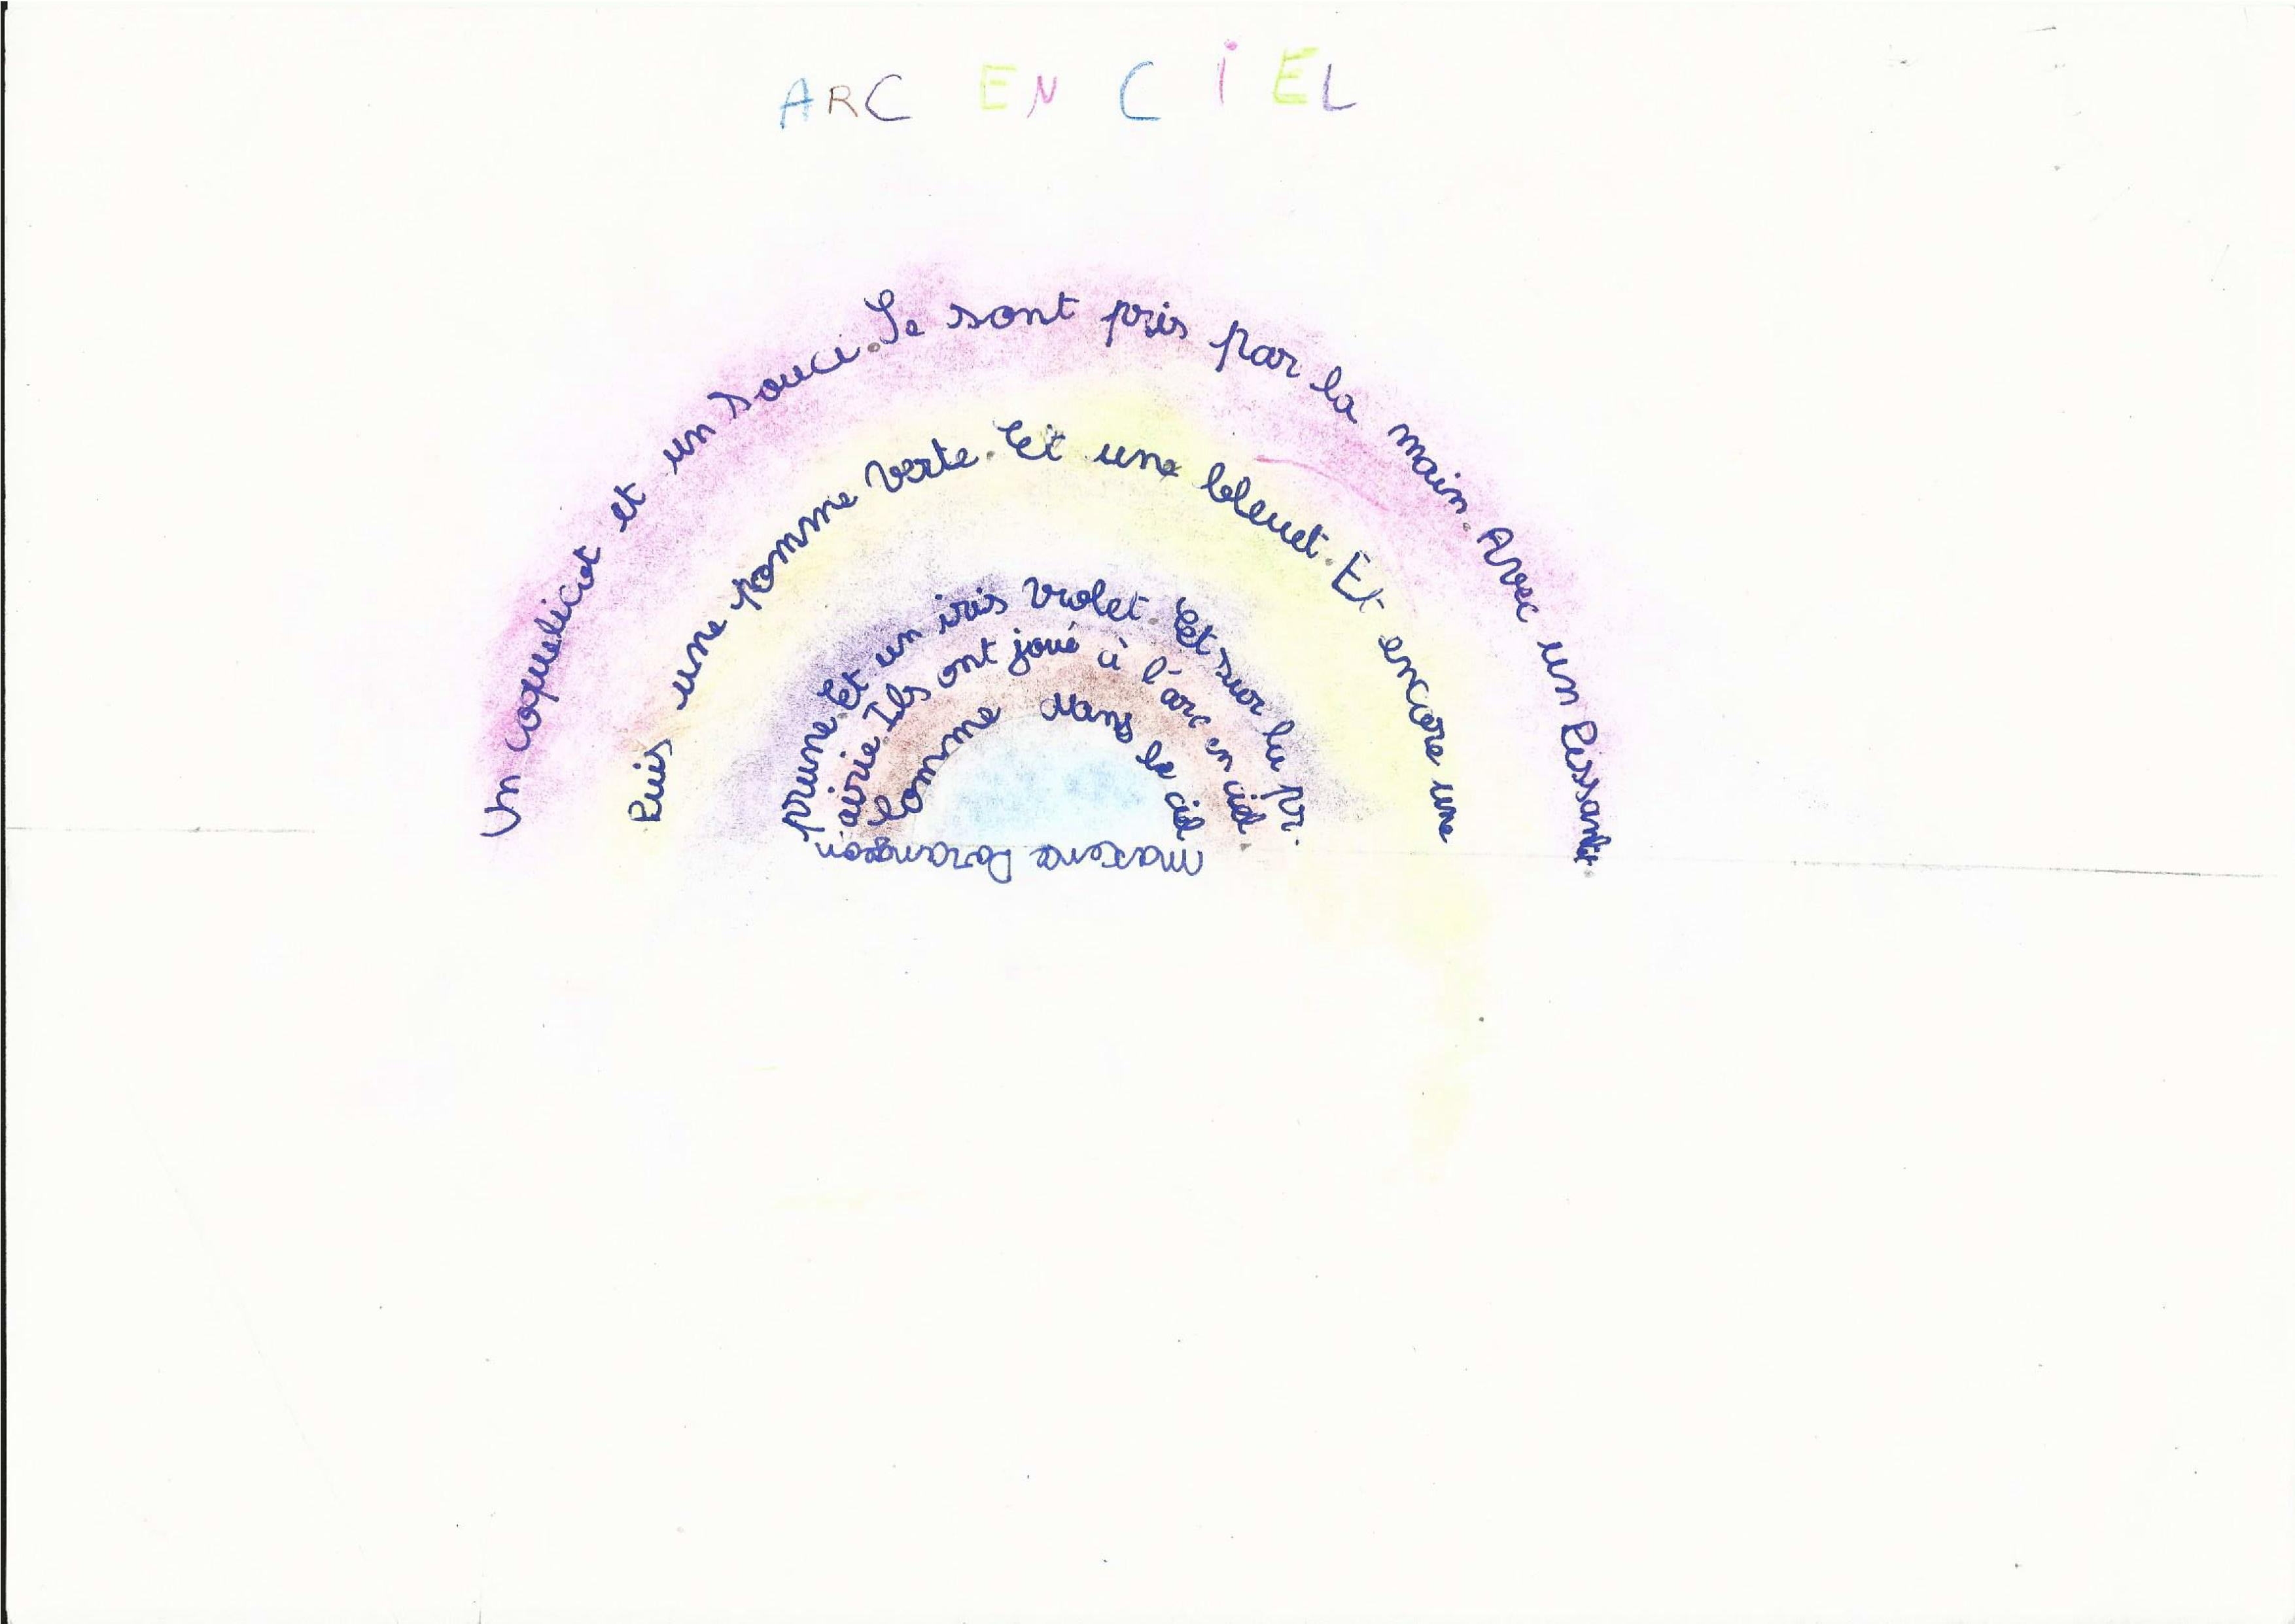 ARC EN CIEL
Un coquelicot et un souci. Se sont pris par la main. Avec un Pissanlit.
Puis une pomme verte. Et une bleuet. Et encore une
prune Et un iris violet. Et sur la pr.
airie Ils ont joué à l'arc en ciel.
Comme dans le ciel
maxence